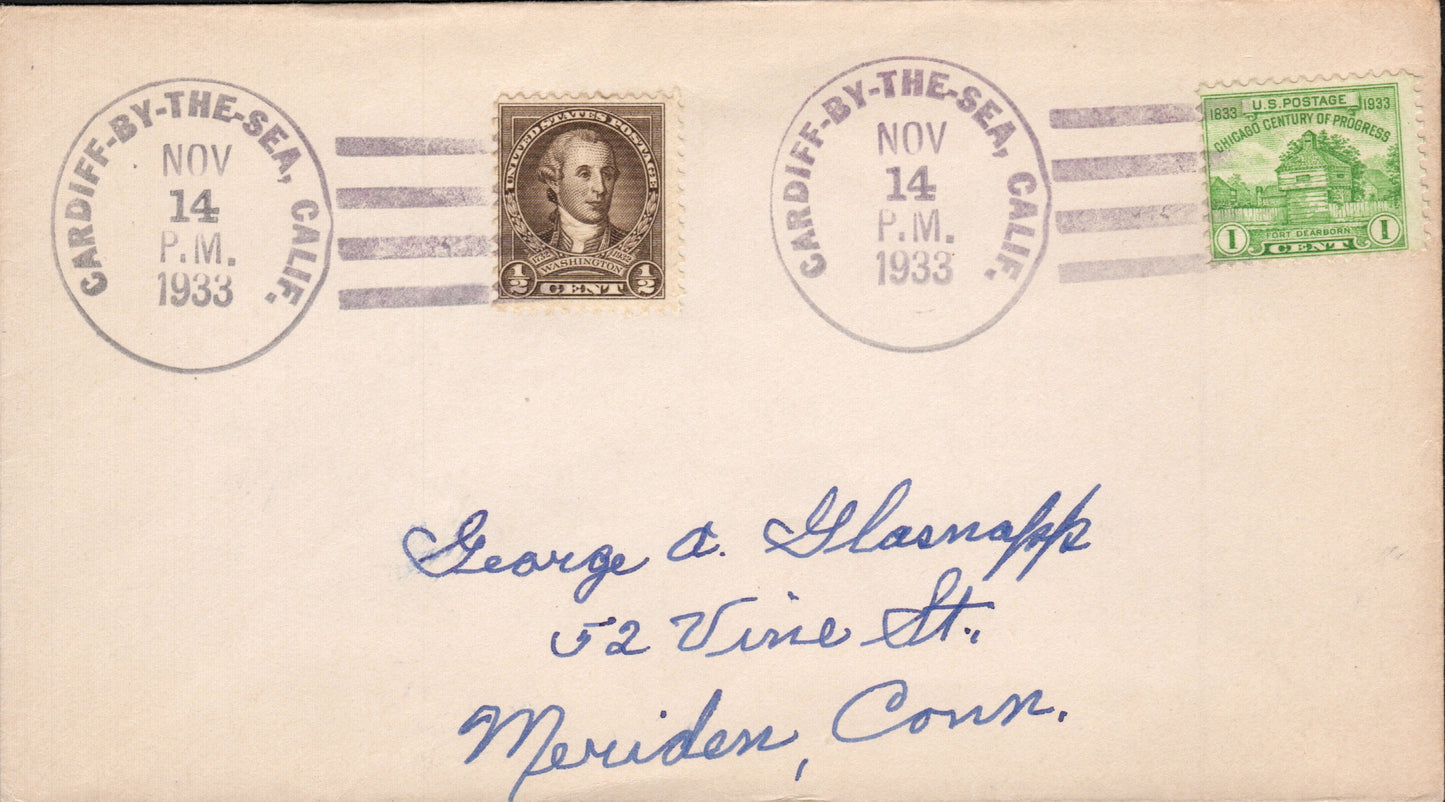 CARDIFF-BY-THE-SEA, CALIF.
NOV
14
P.M.
1933
UNITED STATES POSTAGE
1732 1932
WASHINGTON
1/2 CENT 1/2
CARDIFF-BY-THE-SEA, CALIF.
NOV
14
P.M.
1933
1833 U.S. POSTAGE 1933
CHICAGO CENTURY OF PROGRESS
FORT DEARBORN
1 CENT 1
George A. Glasnapp
52 Vine St.,
Meriden, Conn.